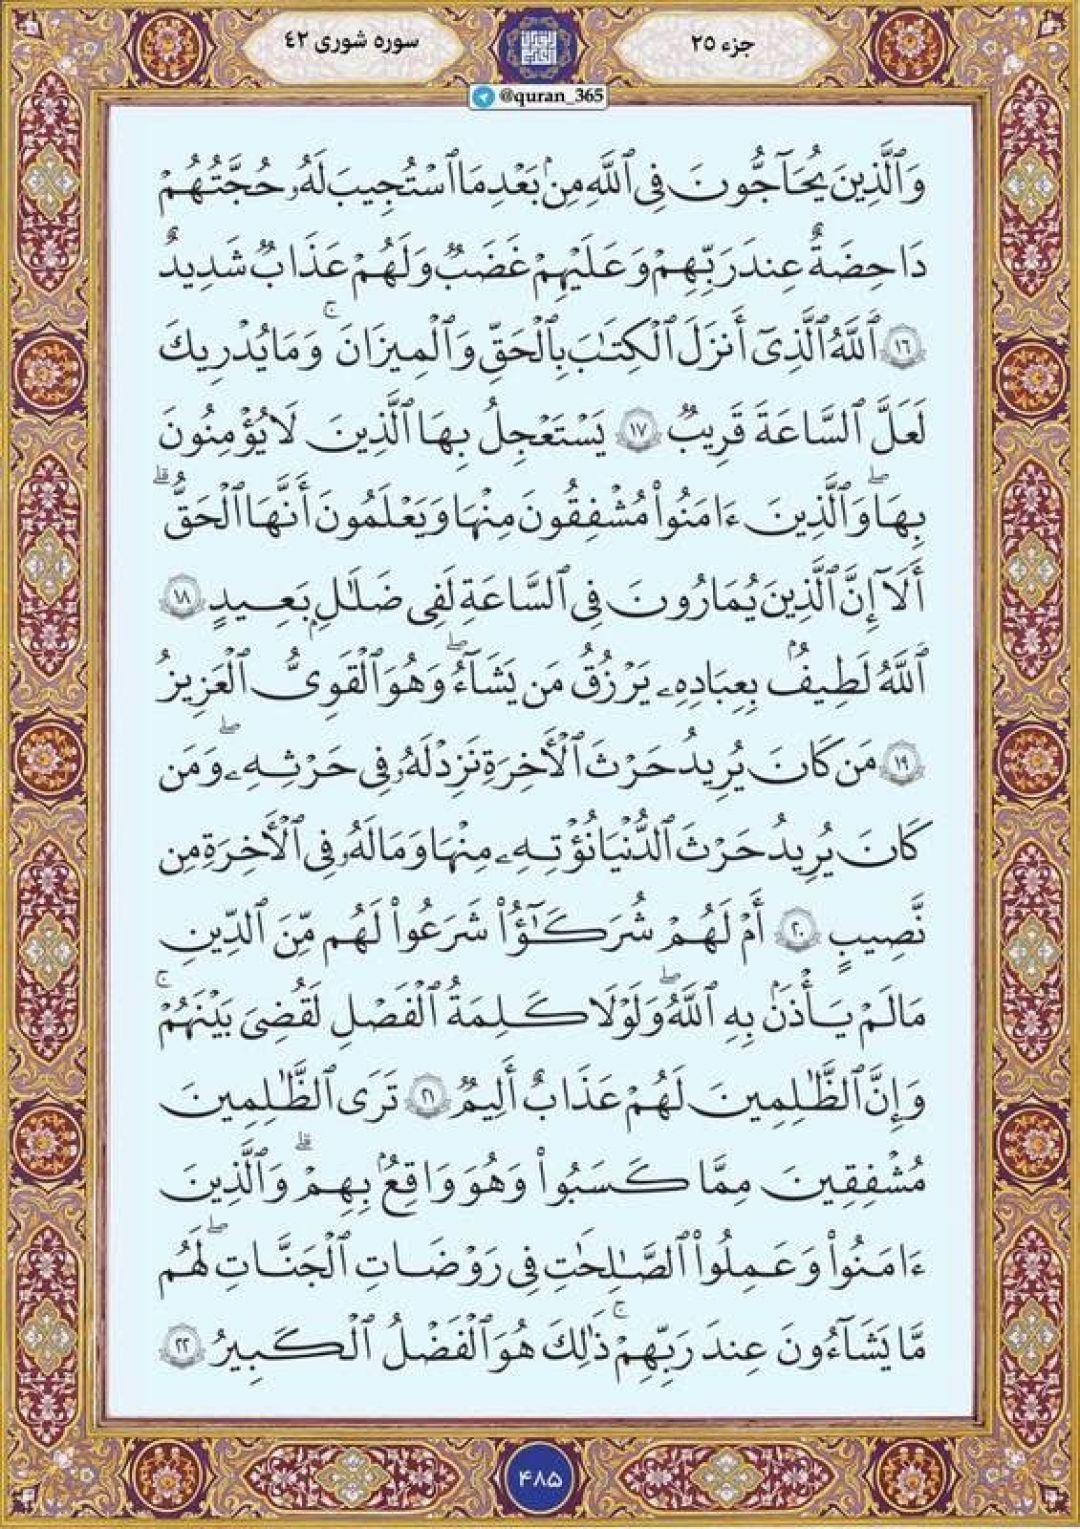 جزء ۲۵
سوره شوری ۴۲
@quran_365
وَٱلَّذِينَ يُحَآجُّونَ فِى ٱللَّهِ مِنۢ بَعْدِ مَا ٱسْتُجِيبَ لَهُۥ حُجَّتُهُمْ
دَاحِضَةٌ عِندَ رَبِّهِمْ وَعَلَيْهِمْ غَضَبٌ وَلَهُمْ عَذَابٌ شَدِيدٌ
١٦ ٱللَّهُ ٱلَّذِىٓ أَنزَلَ ٱلْكِتَٰبَ بِٱلْحَقِّ وَٱلْمِيزَانَ ۚ وَمَا يُدْرِيكَ
لَعَلَّ ٱلسَّاعَةَ قَرِيبٌ ١٧ يَسْتَعْجِلُ بِهَا ٱلَّذِينَ لَا يُؤْمِنُونَ
بِهَا ۖ وَٱلَّذِينَ ءَامَنُوا۟ مُشْفِقُونَ مِنْهَا وَيَعْلَمُونَ أَنَّهَا ٱلْحَقُّ ۗ
أَلَآ إِنَّ ٱلَّذِينَ يُمَارُونَ فِى ٱلسَّاعَةِ لَفِى ضَلَٰلٍۭ بَعِيدٍ ١٨
ٱللَّهُ لَطِيفٌۢ بِعِبَادِهِۦ يَرْزُقُ مَن يَشَآءُ ۖ وَهُوَ ٱلْقَوِىُّ ٱلْعَزِيزُ
١٩ مَن كَانَ يُرِيدُ حَرْثَ ٱلْأَخِرَةِ نَزِدْ لَهُۥ فِى حَرْثِهِۦ ۖ وَمَن
كَانَ يُرِيدُ حَرْثَ ٱلدُّنْيَا نُؤْتِهِۦ مِنْهَا وَمَا لَهُۥ فِى ٱلْأَخِرَةِ مِن
نَّصِيبٍ ٢٠ أَمْ لَهُمْ شُرَكَٰٓؤُا۟ شَرَعُوا۟ لَهُم مِّنَ ٱلدِّينِ
مَا لَمْ يَأْذَنۢ بِهِ ٱللَّهُ ۖ وَلَوْلَا كَلِمَةُ ٱلْفَصْلِ لَقُضِىَ بَيْنَهُمْ ۚ
وَإِنَّ ٱلظَّٰلِمِينَ لَهُمْ عَذَابٌ أَلِيمٌ ٢١ تَرَى ٱلظَّٰلِمِينَ
مُشْفِقِينَ مِمَّا كَسَبُوا۟ وَهُوَ وَاقِعٌۢ بِهِمْ ۗ وَٱلَّذِينَ
ءَامَنُوا۟ وَعَمِلُوا۟ ٱلصَّٰلِحَٰتِ فِى رَوْضَاتِ ٱلْجَنَّاتِ ۖ لَهُم
مَّا يَشَآءُونَ عِندَ رَبِّهِمْ ۚ ذَٰلِكَ هُوَ ٱلْفَضْلُ ٱلْكَبِيرُ ٢٢
۴۸۵